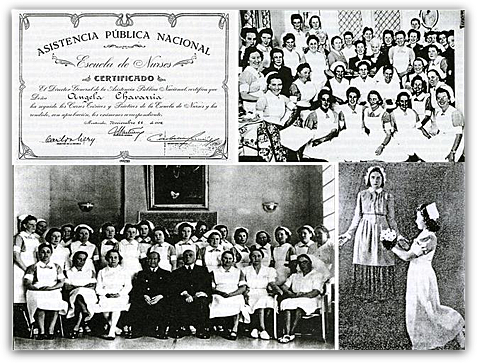 ASISTENCIA PÚBLICA NACIONAL
Escuela de Nurses
CERTIFICADO
El Director General de la Asistencia Pública Nacional certifica que
Angela Chavarría
ha seguido los Cursos Teóricos y Prácticos de la Escuela de Nurses y ha
rendido, con aprobación, los exámenes correspondientes.
Montevideo, Noviembre